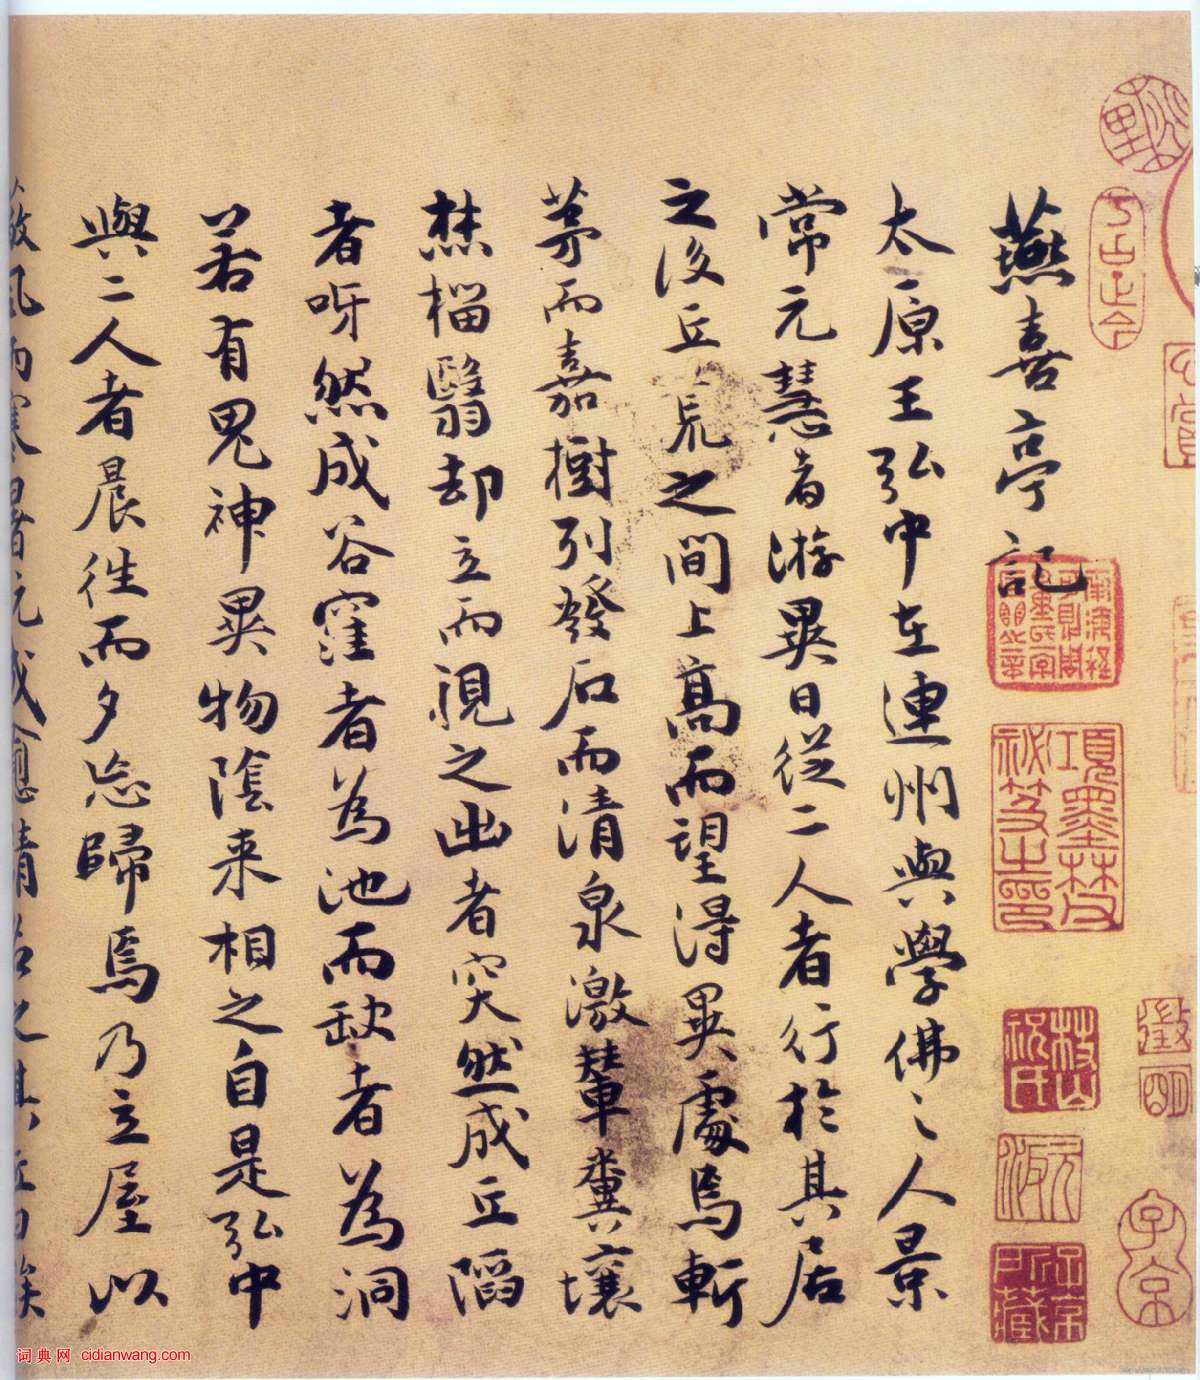 燕喜亭記
太原王弘中在連州與學佛之人景
常元慧者游異日從二人者行於其居
之後丘荒之間上高而望得異處焉斬
茅而嘉樹列發石而清泉激輦糞壤
焚榴翳却立而視之出者突然成丘陷
者呀然成谷窪者為池而缺者為洞
若有鬼神異物陰来相之自是弘中
與二人者晨往而夕忘歸焉乃立屋以
風雨寒暑既成愈請名之其丘曰俟
項墨林父祕笈之印
徵明
子京
枝山
祝氏
子京所藏
词典网 cidianwang.com